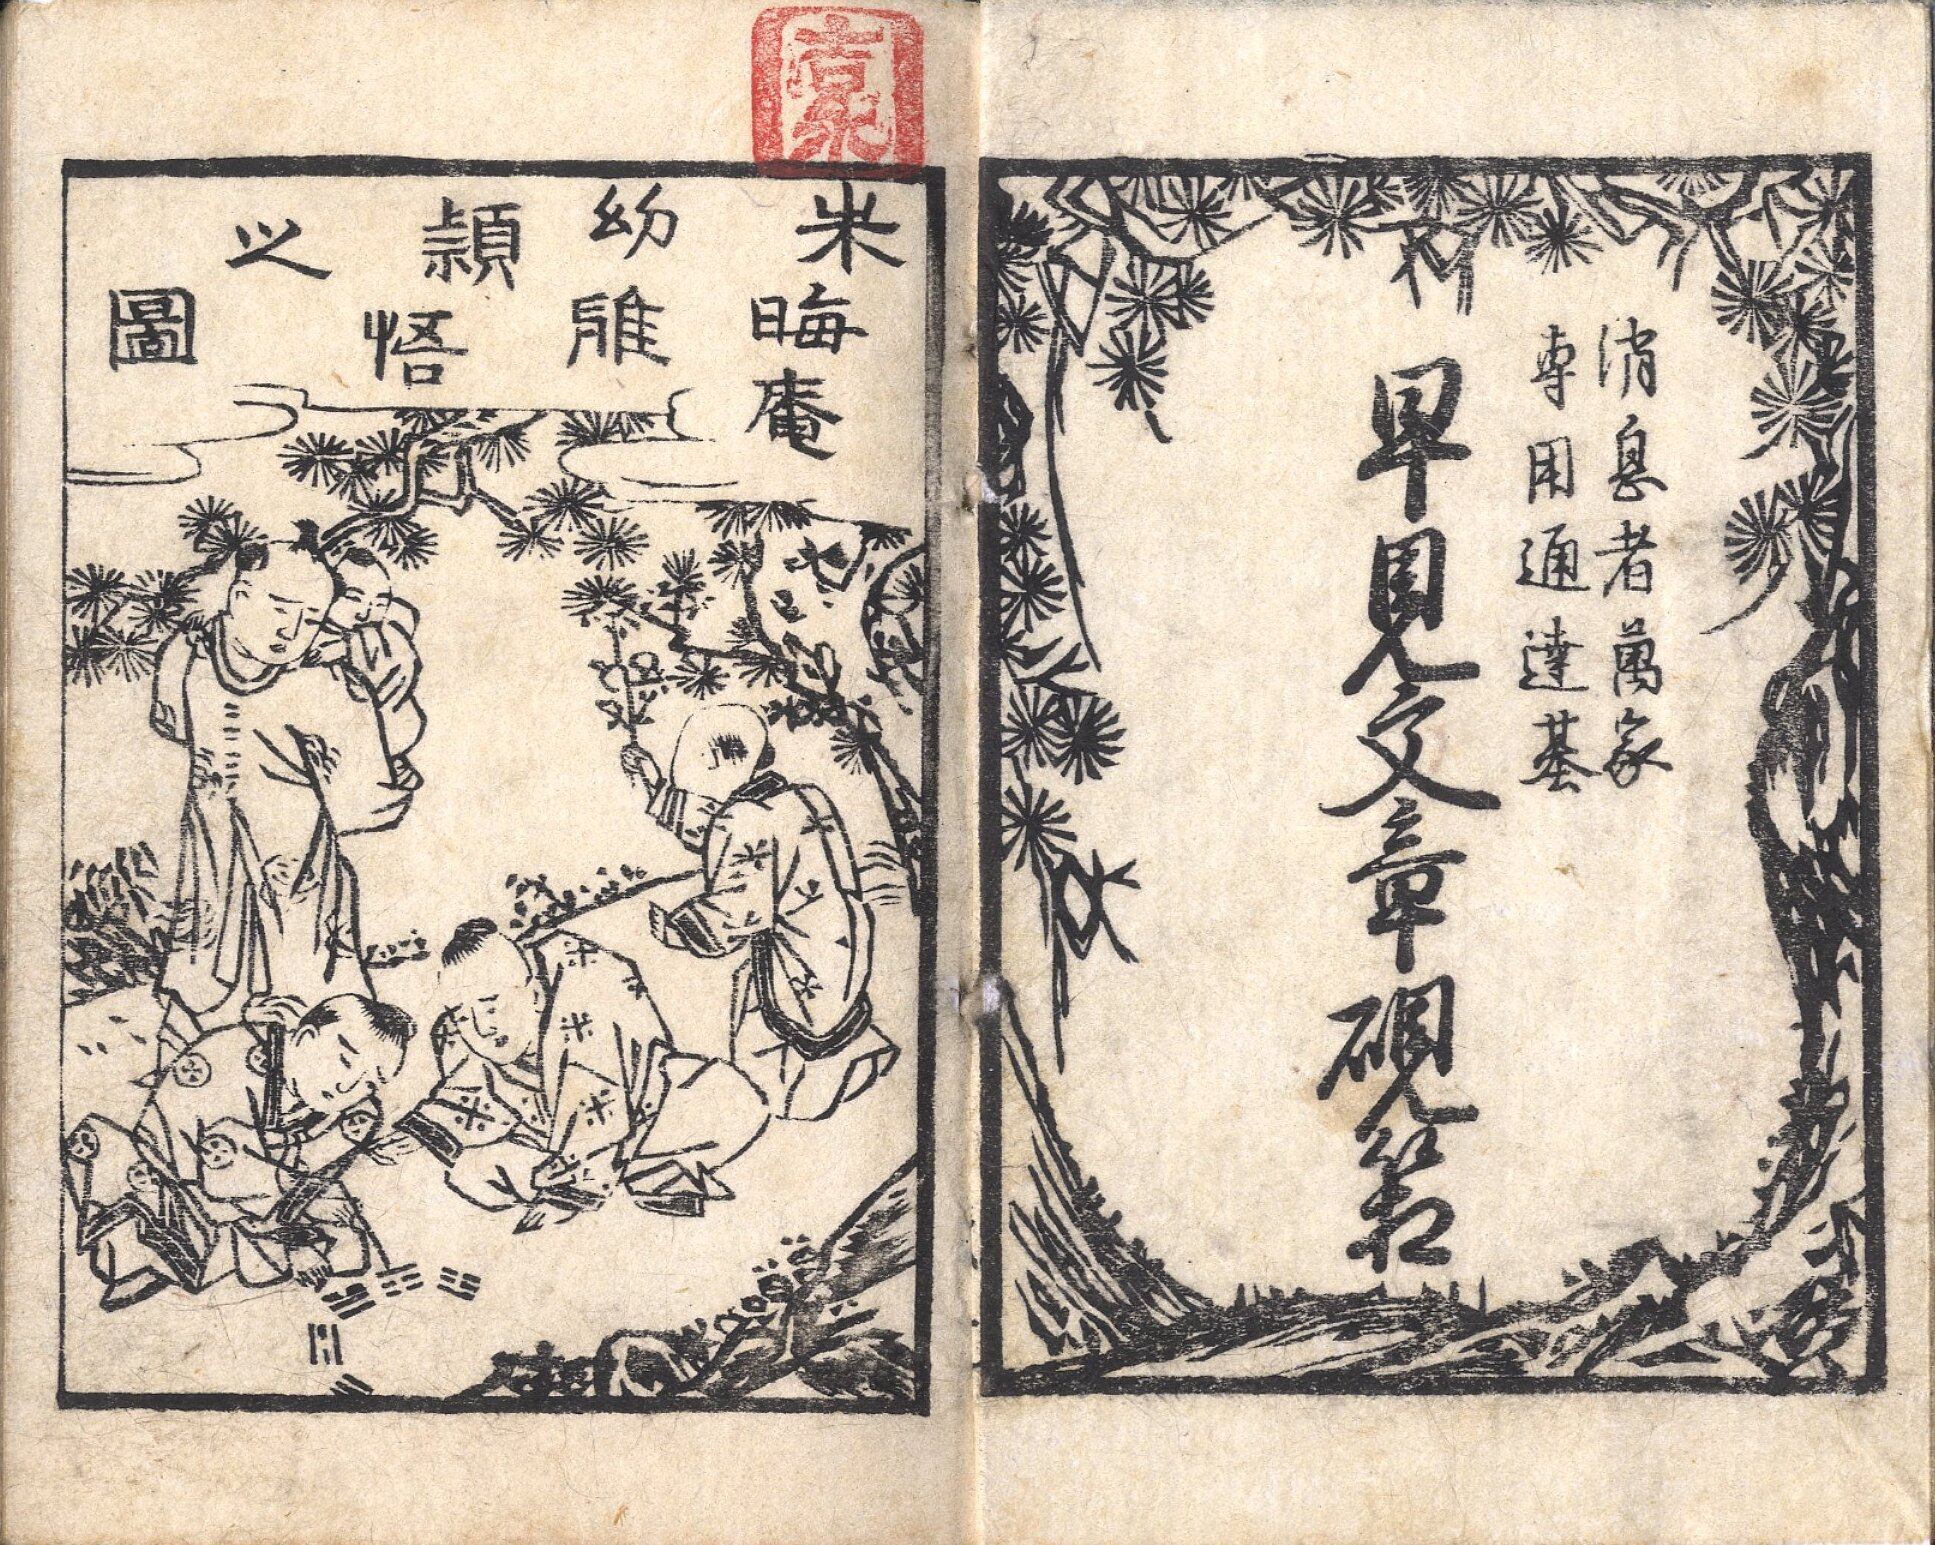 消息者萬家
専用通達基
早見文章硯箱
朱晦庵
幼雅
頴悟
之
圖